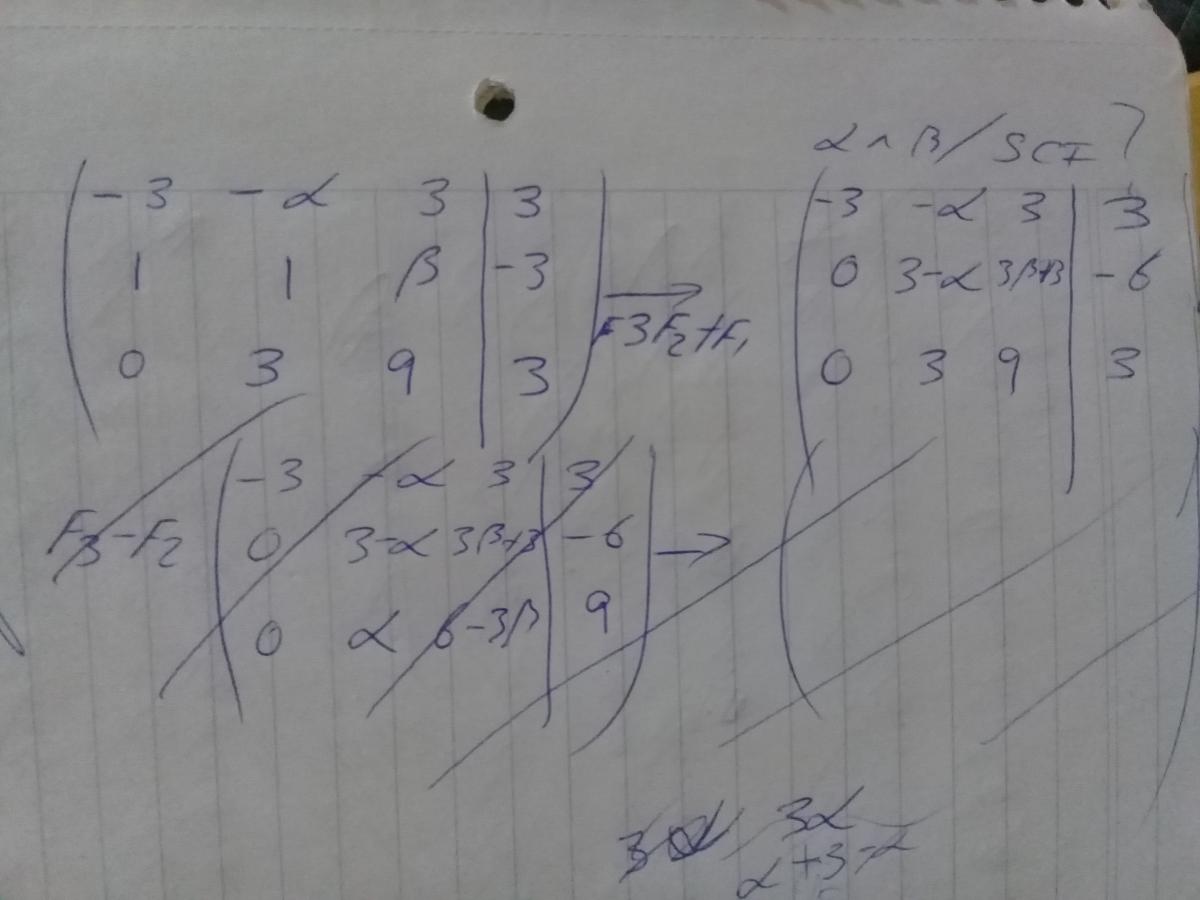 α ∧ β / SCI ?
-3 -α 3 | 3
1 1 β | -3
0 3 9 | 3
→ 3F₂+F₁
-3 -α 3 | 3
0 3-α 3β+3 | -6
0 3 9 | 3
F₃-F₂
-3 -α 3 | 3
0 3-α 3β+3 | -6
0 α 6-3β | 9
→
3α
α+3-α